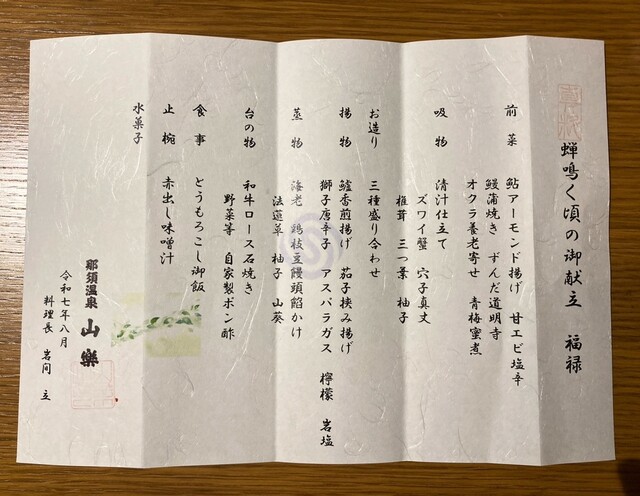 蝉鳴く頃の御献立　福禄
前菜　鮎アーモンド揚げ　甘エビ塩辛
鰻蒲焼き　ずんだ道明寺
オクラ養老寄せ　青梅蜜煮
吸物　清汁仕立て
ズワイ蟹　穴子真丈
椎茸　三つ葉　柚子
お造り　三種盛り合わせ
揚物　鱸香煎揚げ　茄子挟み揚げ
獅子唐辛子　アスパラガス　檸檬　岩塩
蒸物　海老　鶏枝豆饅頭餡かけ
法蓮草　柚子　山葵
台の物　和牛ロース石焼き
野菜等　自家製ポン酢
食事　とうもろこし御飯
止椀　赤出し味噌汁
水菓子
那須温泉　山樂
令和七年八月
料理長　岩間　立